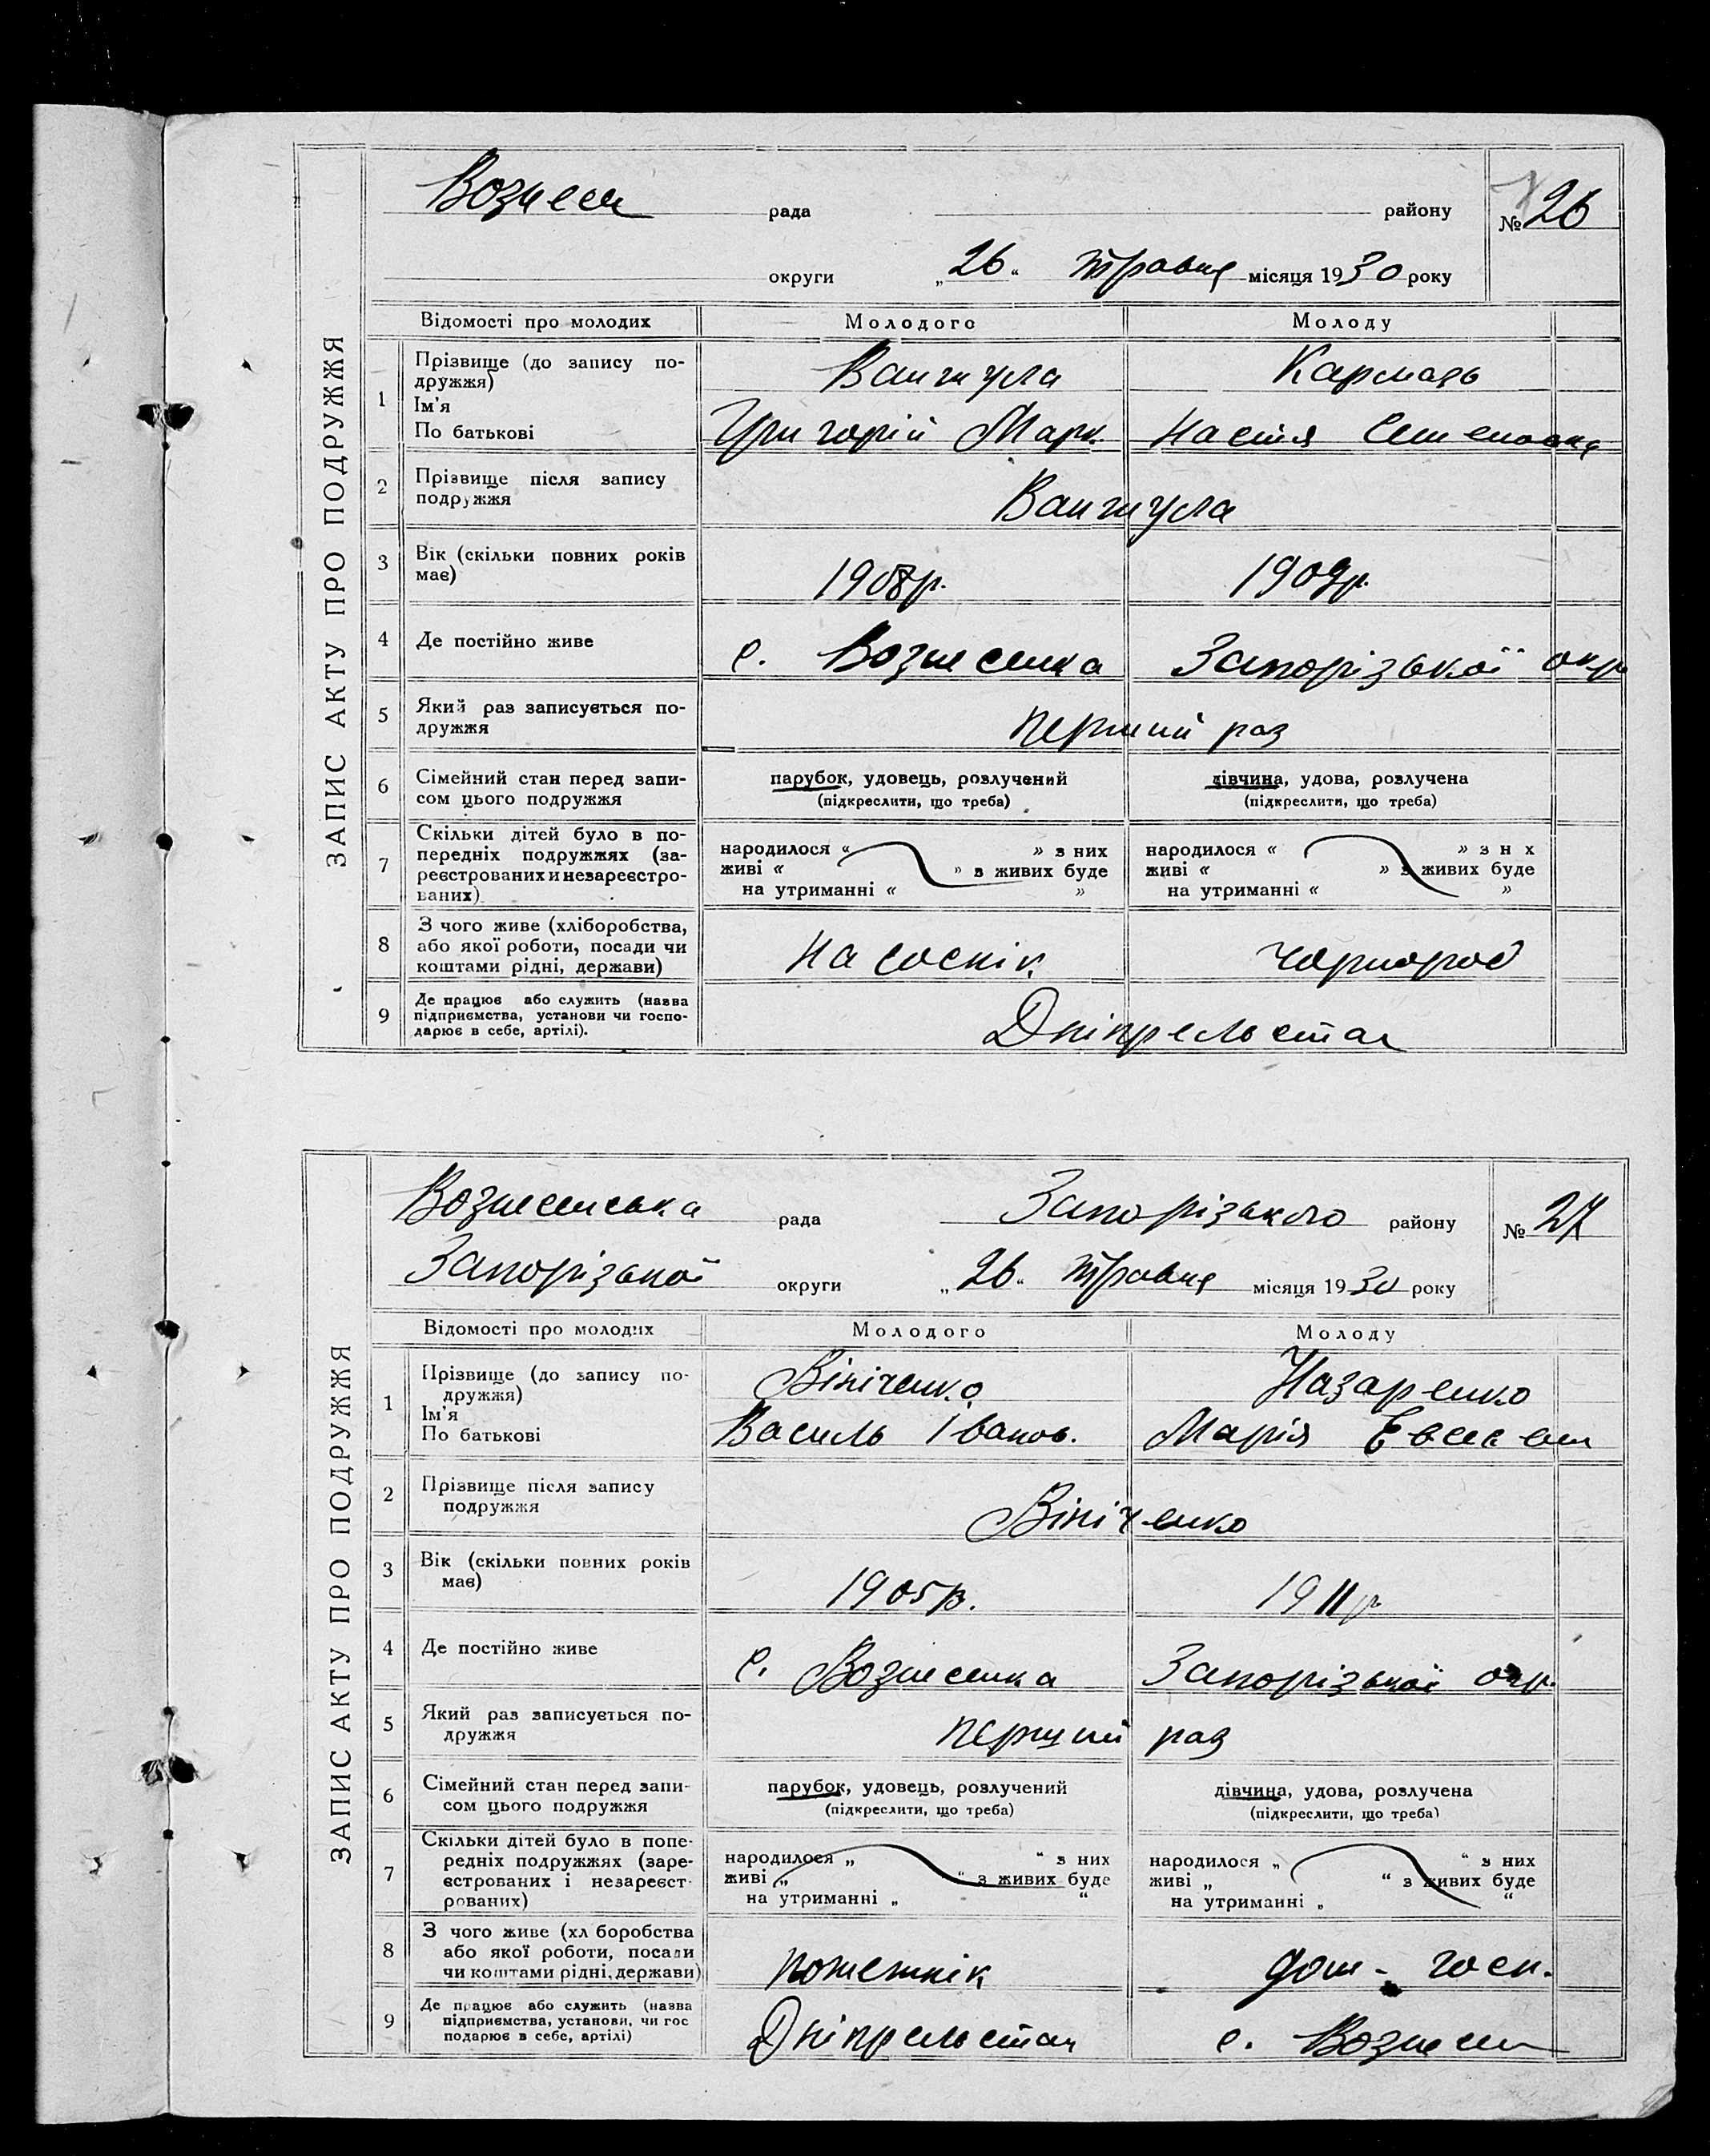 ЗАПИС АКТУ ПРО ПОДРУЖЖЯ
Вознесен рада району № 26
округи „26“ травня місяця 1930 року
Відомості про молодих Молодого Молоду
1 Прізвище (до запису подружжя) Ваншула Кармазь
Ім'я
По батькові Григорій Марк. Настя Семеновна
2 Прізвище після запису подружжя Ваншула
3 Вік (скільки повних років має) 1908р. 1909р.
4 Де постійно живе с. Вознесенка Запорізької окр
5 Який раз записується подружжя перший раз
6 Сімейний стан перед записом цього подружжя парубок, удовець, розлучений дівчина, удова, розлучена
(підкреслити, що треба) (підкреслити, що треба)
7 Скільки дітей було в попередніх подружжях (зареєстрованих и незареєстрованих)
народилося « » з них народилося « » з н х
живі « » з живих буде живі « » з живих буде
на утриманні « » на утриманні « »
8 З чого живе (хліборобства, або якої роботи, посади чи коштами рідні, держави) Насоснік чорнороб
9 Де працює або служить (назва підприємства, установи чи господарює в себе, артілі). Дніпрельстан
ЗАПИС АКТУ ПРО ПОДРУЖЖЯ
Вознесенська рада Запорізького району № 27
Запорізької округи „26“ травня місяця 1930 року
Відомості про молодих Молодого Молоду
1 Прізвище (до запису подружжя) Вініченко Назаренко
Ім'я
По батькові Василь Іванов. Марія Євсеєвн
2 Прізвище після запису подружжя Вініченко
3 Вік (скільки повних років має) 1905р. 1911р
4 Де постійно живе с. Вознесенка Запорізької окр.
5 Який раз записується подружжя перший раз
6 Сімейний стан перед записом цього подружжя парубок, удовець, розлучений дівчина, удова, розлучена
(підкреслити, що треба) (підкреслити, що треба)
7 Скільки дітей було в попередніх подружжях (зареєстрованих і незареєстрованих)
народилося „ “ з них народилося „ “ з них
живі „ “ з живих буде живі „ “ з живих буде
на утриманні „ “ на утриманні „ “
8 З чого живе (хл боробства або якої роботи, посади чи коштами рідні, держави) пожежнік дом-госп.
9 Де працює або служить (назва підприємства, установи, чи гос подарює в себе, артілі) Дніпрельстан с. Вознесен